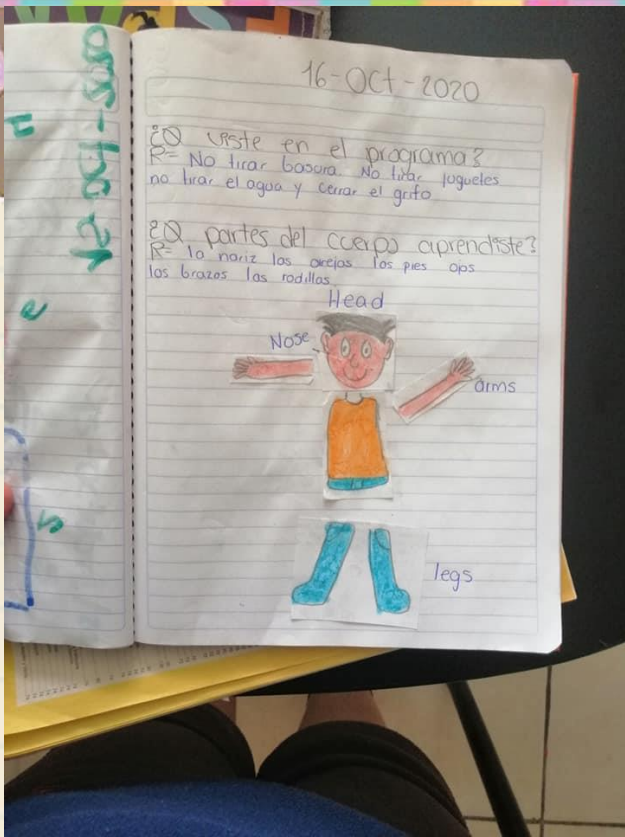 16-Oct-2020
¿Q viste en el programa?
R= No tirar basura No tirar juguetes
no tirar el agua y cerrar el grifo
¿Q partes del cuerpo aprendiste?
R= la nariz las orejas los pies ojos
los brazos las rodillas
Head
Nose
arms
legs